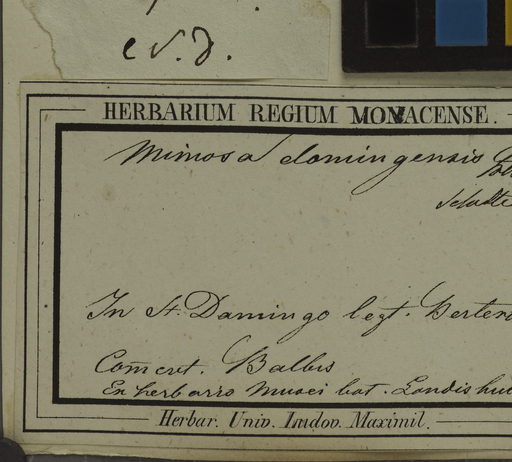 e v. d.
HERBARIUM REGIUM MONACENSE.
Mimosa domingensis
In St. Domingo legt. Bertero
Com̄ct. Balbis
Ex herbario Musei bot. Landishu
Herbar. Univ. Ludov. Maximil.